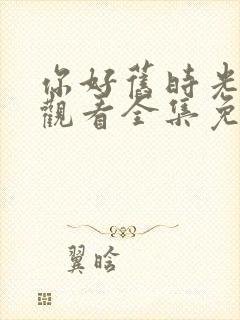 你好舊時光
觀看全集免
翼晗